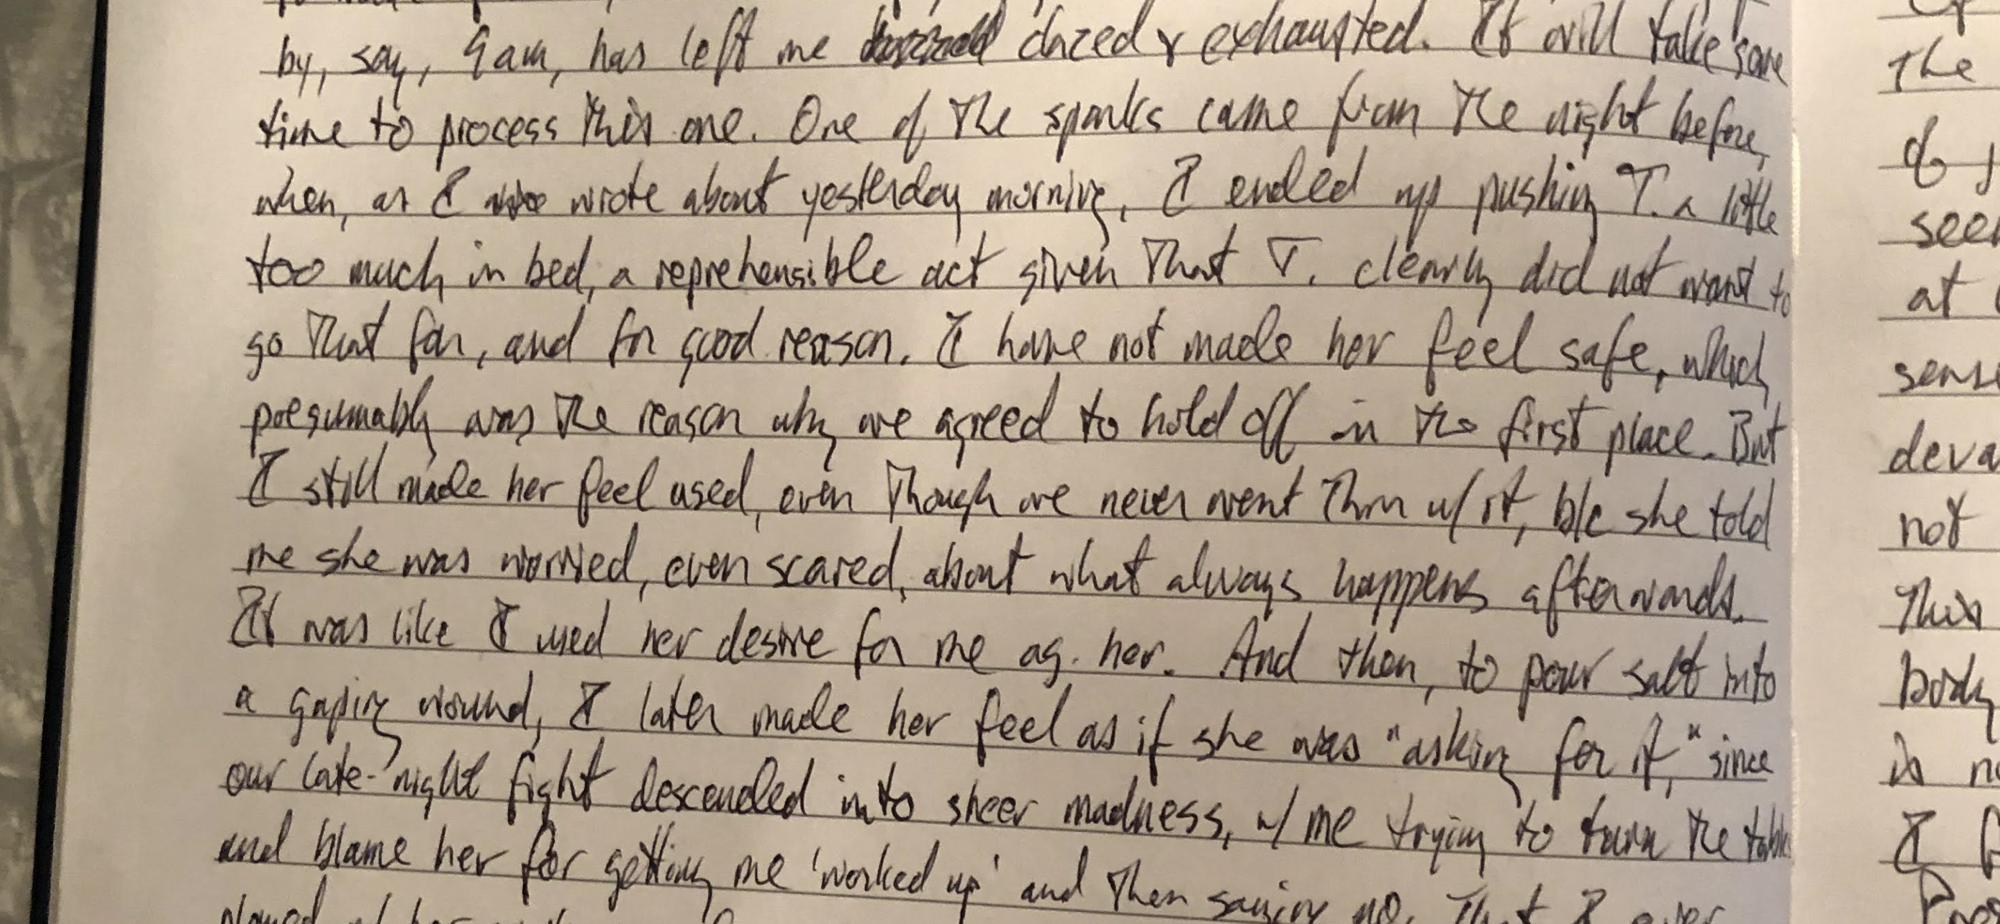 by, say, 9am, has left me dazed & exhausted. It will take some
time to process this one. One of the sparks came from the night before,
when, as I wrote about yesterday morning, I ended up pushing T. a little
too much in bed, a reprehensible act given that T. clearly did not want to
go that far, and for good reason. I have not made her feel safe, which
presumably was the reason why we agreed to hold off in the first place. But
I still made her feel used, even though we never went thru w/ it, b/c she told
me she was worried, even scared, about what always happens afterwards.
It was like I used her desire for me ag. her. And then, to pour salt into
a gaping wound, I later made her feel as if she was "asking for it," since
our late-night fight descended into sheer madness, w/ me trying to turn the tables
and blame her for getting me 'worked up' and then saying no. That I ever
The
of
at
not
This
body
is
I